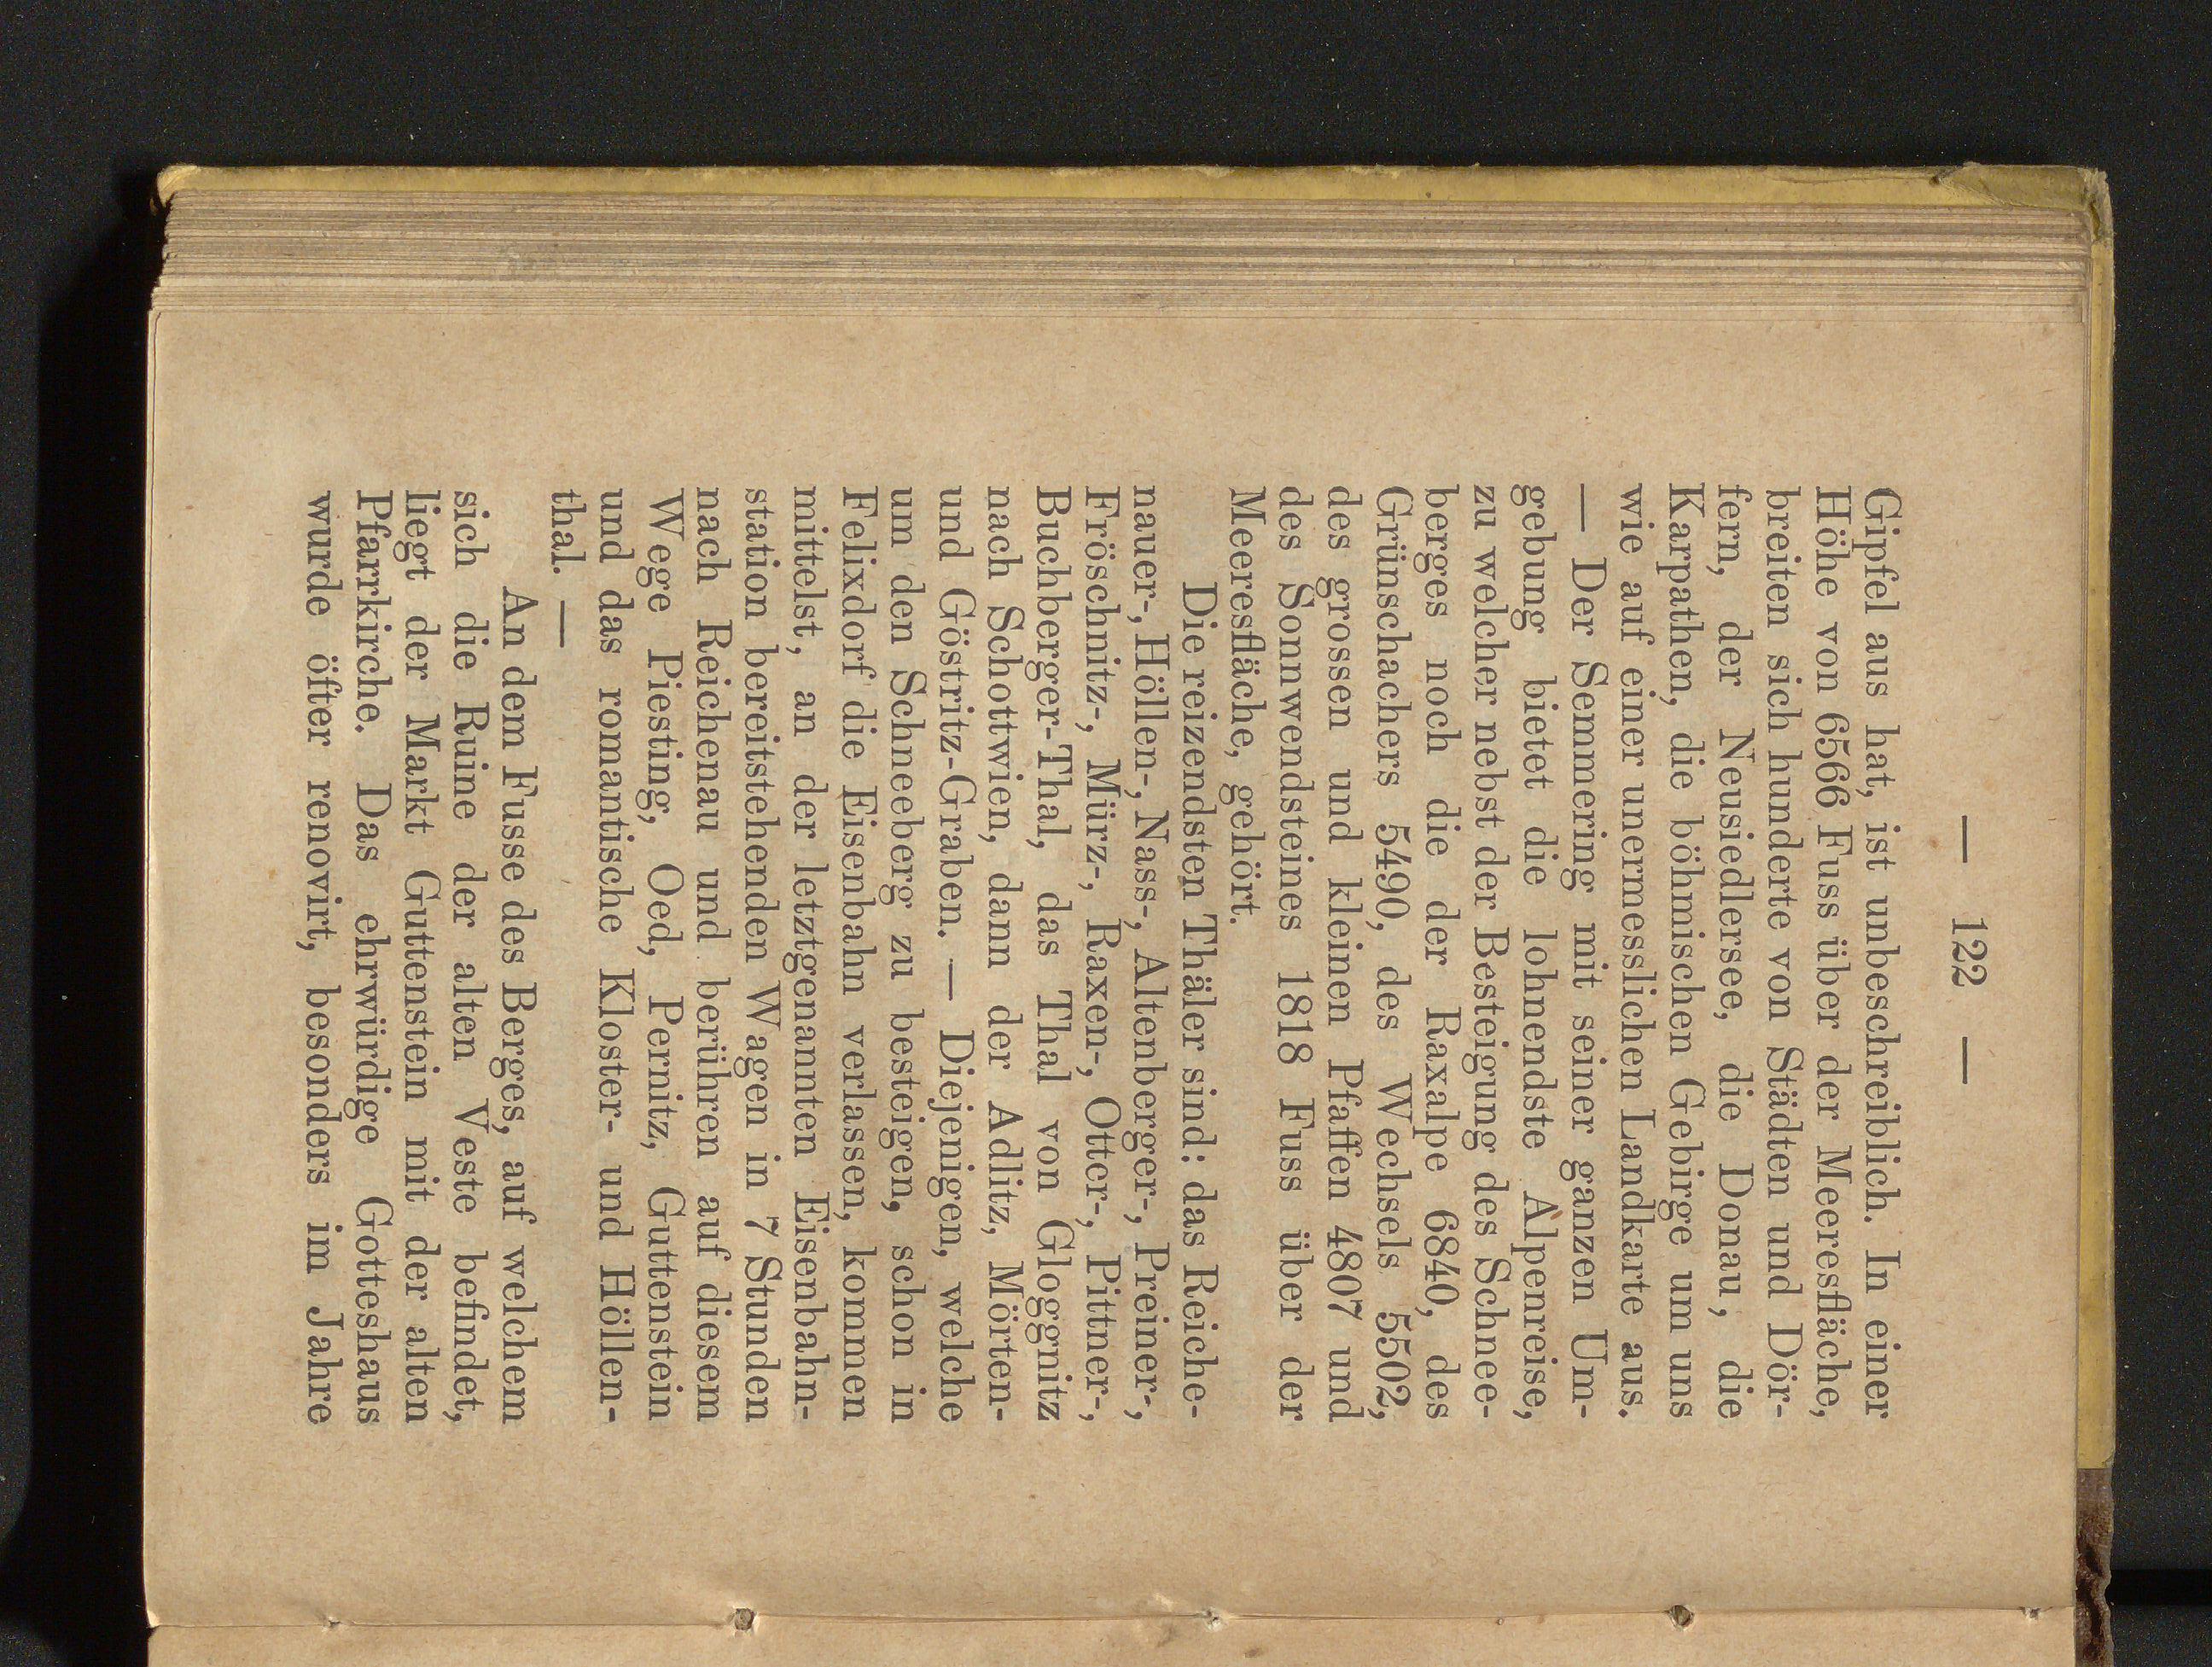 — 122 —
Gipfel aus hat, ist unbeschreiblich. In einer
Höhe von 6566 Fuss über der Meeresfläche,
breiten sich hunderte von Städten und Dör-
fern, der Neusiedlersee, die Donau, die
Karpathen, die böhmischen Gebirge um uns
wie auf einer unermesslichen Landkarte aus.
— Der Semmering mit seiner ganzen Um-
gebung bietet die lohnendste Alpenreise,
zu welcher nebst der Besteigung des Schnee-
berges noch die der Raxalpe 6840, des
Grünschachers 5490, des Wechsels 5502,
des grossen und kleinen Pfaffen 4807 und
des Sonnwendsteines 1818 Fuss über der
Meeresfläche, gehört.
Die reizendsten Thäler sind: das Reiche-
nauer-, Höllen-, Nass-, Altenberger-, Preiner-,
Fröschnitz-, Mürz-, Raxen-, Otter-, Pittner-,
Buchberger-Thal, das Thal von Gloggnitz
nach Schottwien, dann der Adlitz, Mörten-
und Göstritz-Graben. — Diejenigen, welche
um den Schneeberg zu besteigen, schon in
Felixdorf die Eisenbahn verlassen, kommen
mittelst, an der letztgenannten Eisenbahn-
station bereitstehenden Wagen in 7 Stunden
nach Reichenau und berühren auf diesem
Wege Piesting, Oed, Pernitz, Guttenstein
und das romantische Kloster- und Höllen-
thal. —
An dem Fusse des Berges, auf welchem
sich die Ruine der alten Veste befindet,
liegt der Markt Guttenstein mit der alten
Pfarrkirche. Das ehrwürdige Gotteshaus
wurde öfter renovirt, besonders im Jahre